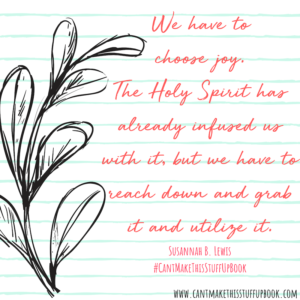 We have to
choose joy.
The Holy Spirit has
already infused us
with it, but we have to
reach down and grab
it and utilize it.
Susannah B. Lewis
#CantMakeThisStuffUpBook
www.cantmakethisstuffupbook.com